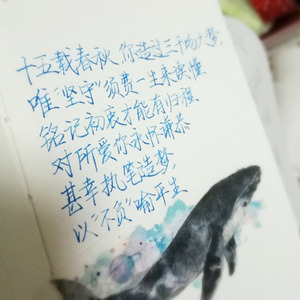 十五载春秋,你造过三千场大梦,
唯“坚守”须费一生来读懂
铭记初衷才能有归程
对所爱你永怀谦恭
甚幸执笔造梦,
以“不负”喻平生